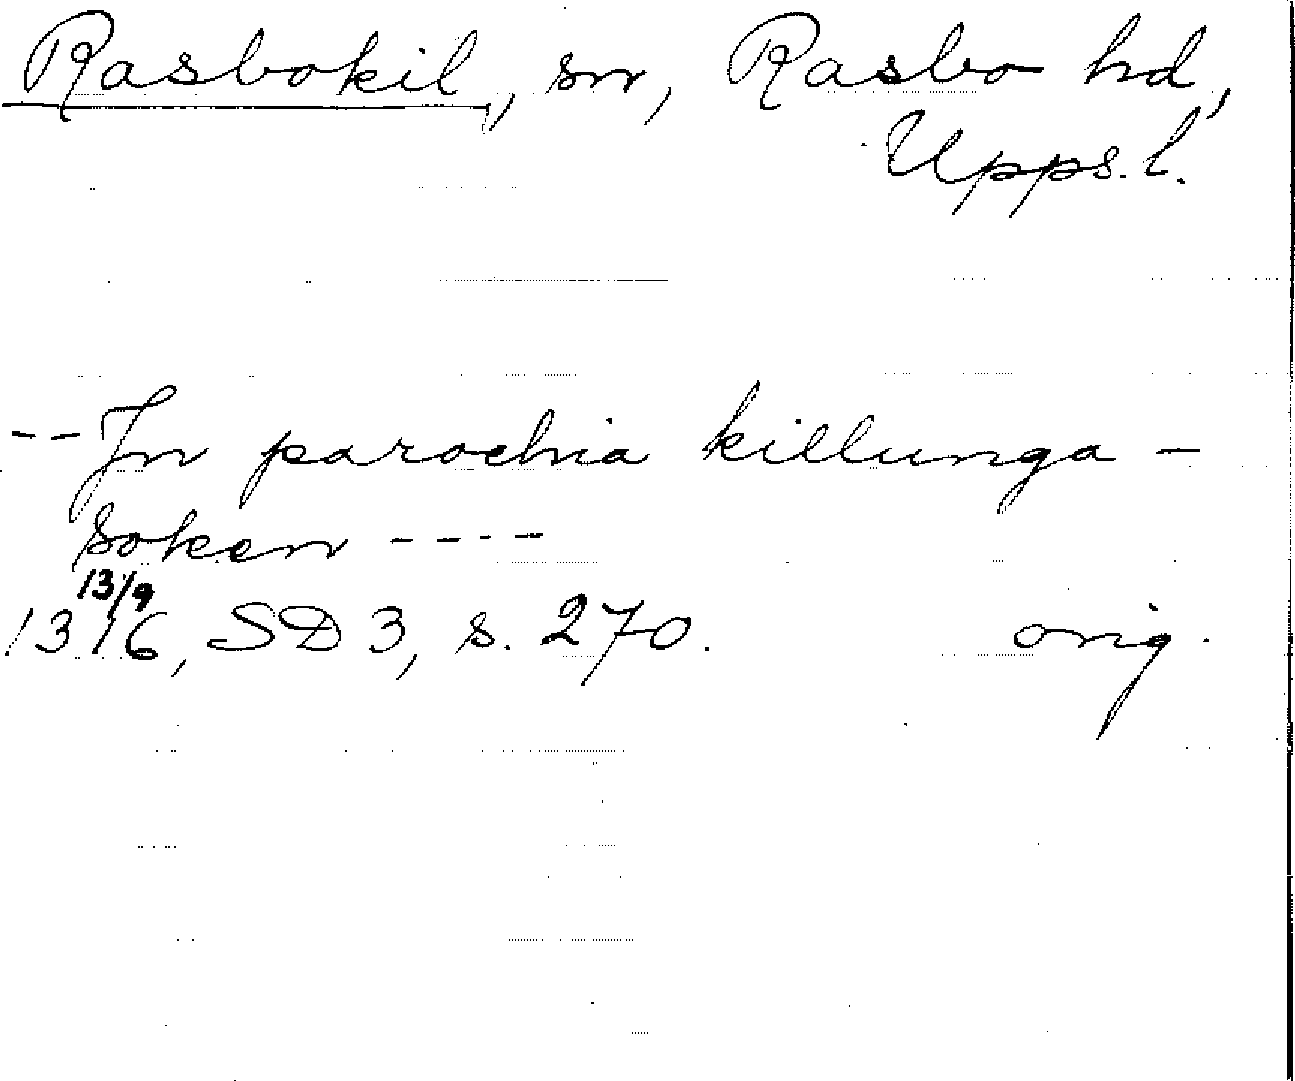 Rasbokil, sn, Rasbo hd,
Upps. l.
--In parochia killunga-
soken ----
13/9
1316, SD 3, s. 270. orig.